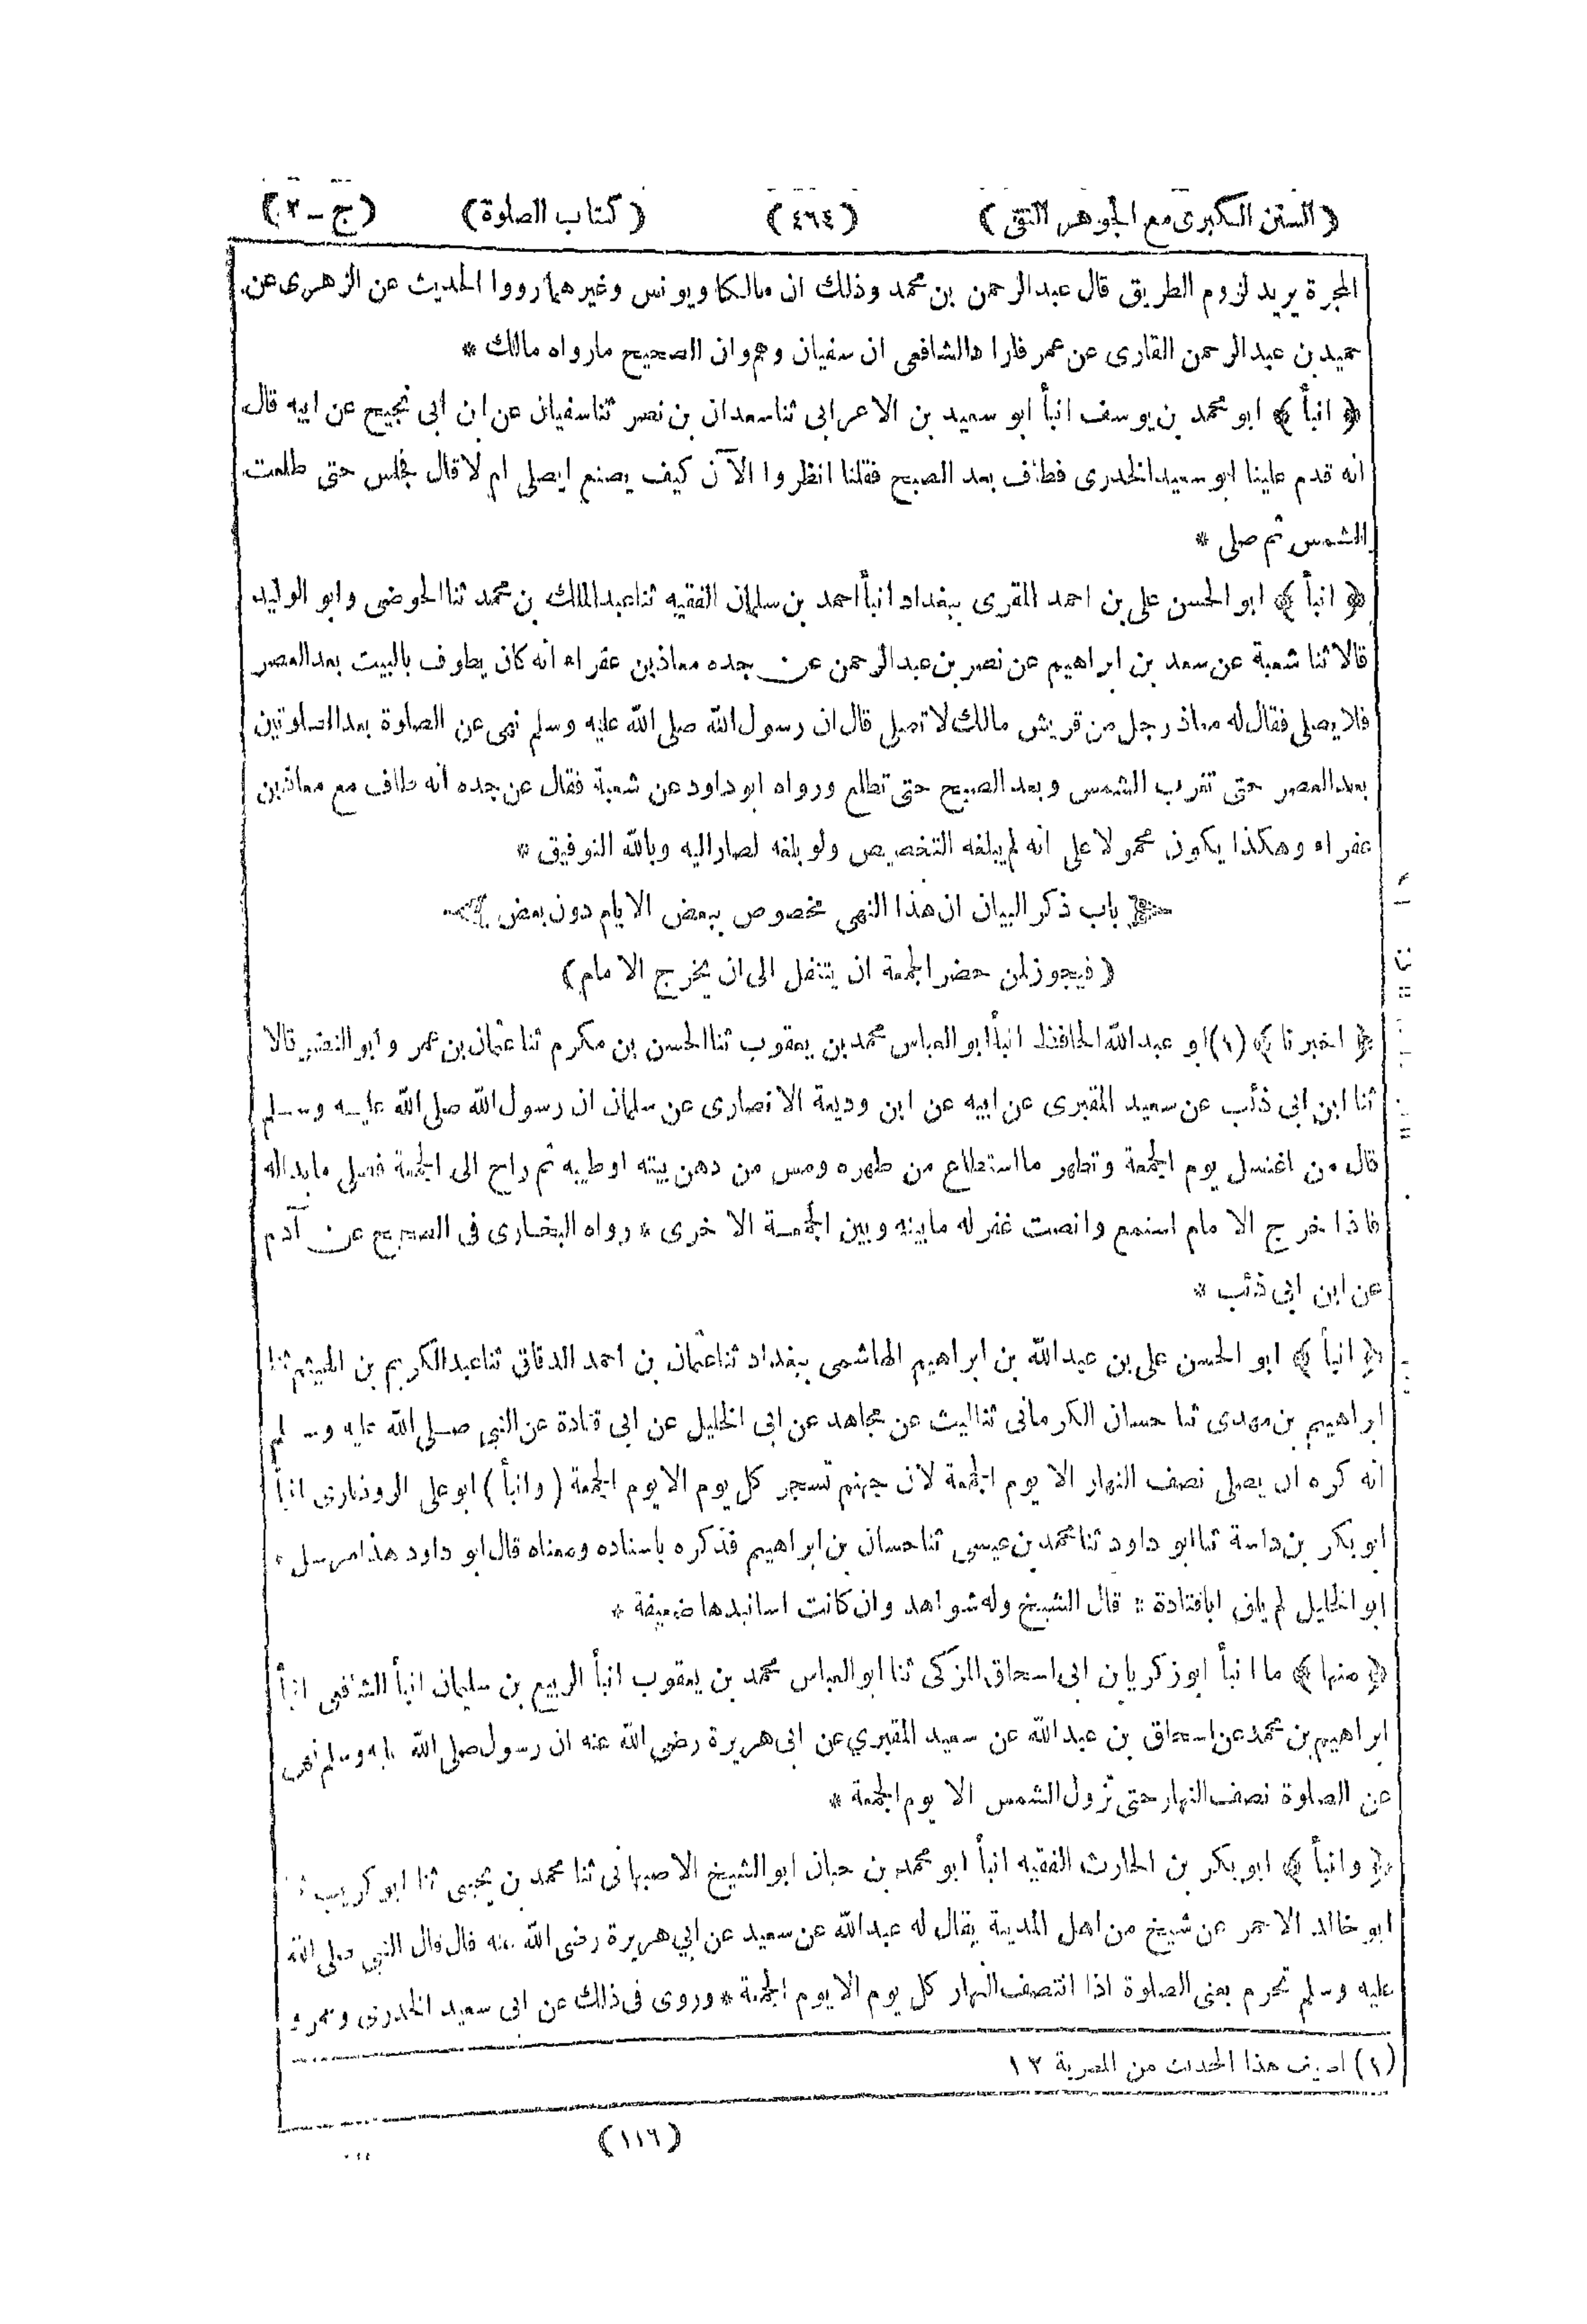 (السنن الكبرى مع الجوهر النقى) (٤٦٤) (كتاب الصلوة) (ج-٢)
المجرة يريد لزوم الطريق قال عبد الرحمن بن محمد وذلك ان مالكا ويونس وغيرهما رووا الحديث عن الزهرى عن
حميد بن عبد الرحمن القارى عن عمر فاراد الشافعى ان سفيان وهم وان الصحيح ما رواه مالك *
﴿ انبأ ﴾ ابو محمد بن يوسف انبأ ابو سعيد بن الاعرابى ثنا سعدان بن نصر ثنا سفيان عن ابن ابى نجيح عن ابيه قال
انه قدم علينا ابو سعيد الخدرى فطاف بعد الصبح فقلنا انظروا الآن كيف يصنع ايصلى ام لا قال فجلس حتى طلعت
الشمس ثم صلى *
﴿ انبأ ﴾ ابو الحسن على بن احمد المقرى ببغداد انبأ احمد بن سلمان الفقيه ثنا عبد الملك بن محمد ثنا الحوضى وابو الوليد
قالا ثنا شعبة عن سعد بن ابراهيم عن نصر بن عبد الرحمن عن جده معاذ بن عفراء انه كان يطوف بالبيت بعد العصر
فلا يصلى فقال له معاذ رجل من قريش مالك لا تصلى قال ان رسول الله صلى الله عليه وسلم نهى عن الصلوة بعد الصلوتين
بعد العصر حتى تغرب الشمس وبعد الصبح حتى تطلع ورواه ابو داود عن شعبة فقال عن جده انه طاف مع معاذ بن
عفراء وهكذا يكون محمولا على انه لم يبلغه التخصيص ولو بلغه لصار اليه وبالله التوفيق *
باب ذكر البيان ان هذا النهى مخصوص ببعض الايام دون بعض
(فيجوز لمن حضر الجمعة ان يتنفل الى ان يخرج الامام)
﴿ اخبرنا ﴾ (١) ابو عبد الله الحافظ انبأ ابو العباس محمد بن يعقوب ثنا الحسن بن مكرم ثنا عثمان بن عمر وابو النضر قالا
ثنا ابن ابى ذئب عن سعيد المقبرى عن ابيه عن ابن وديعة الانصارى عن سلمان ان رسول الله صلى الله عليه وسلم
قال من اغتسل يوم الجمعة وتطهر ما استطاع من طهره ومس من دهن بيته او طيبه ثم راح الى الجمعة فصلى ما بدا له
فاذا خرج الامام استمع وانصت غفر له ما بينه وبين الجمعة الاخرى * رواه البخارى فى الصحيح عن آدم
عن ابن ابى ذئب *
﴿ انبأ ﴾ ابو الحسن على بن عبد الله بن ابراهيم الهاشمى ببغداد ثنا عثمان بن احمد الدقاق ثنا عبد الكريم بن الهيثم ثنا
ابراهيم بن مهدى ثنا حسان الكرمانى ثنا ليث عن مجاهد عن ابى الخليل عن ابى قتادة عن النبى صلى الله عليه وسلم
انه كره ان يصلى نصف النهار الا يوم الجمعة لان جهنم تسجر كل يوم الا يوم الجمعة (وانبأ) ابو على الروذبارى انبأ
ابو بكر بن داسة ثنا ابو داود ثنا محمد بن عيسى ثنا حسان بن ابراهيم فذكره باسناده ومعناه قال ابو داود هذا مرسل *
ابو الخليل لم يلق ابا قتادة * قال الشيخ وله شواهد وان كانت اسانيدها ضعيفة *
﴿ منها ﴾ ما انبأ ابو زكريا بن ابى اسحاق المزكى ثنا ابو العباس محمد بن يعقوب انبأ الربيع بن سليمان انبأ الشافعى انبأ
ابراهيم بن محمد عن اسحاق بن عبد الله عن سعيد المقبري عن ابى هريرة رضى الله عنه ان رسول صلى الله عليه وسلم نهى
عن الصلوة نصف النهار حتى تزول الشمس الا يوم الجمعة *
﴿ وانبأ ﴾ ابو بكر بن الحارث الفقيه انبأ ابو محمد بن حبان ابو الشيخ الاصبهانى ثنا محمد بن يحيى ثنا ابو كريب ثنا
ابو خالد الاحمر عن شيخ من اهل المدينة يقال له عبد الله عن سعيد عن ابي هريرة رضى الله عنه قال قال النبي صلى الله
عليه وسلم تحرم يعنى الصلوة اذا انتصف النهار كل يوم الا يوم الجمعة * وروى فى ذلك عن ابى سعيد الخدرى وعمرو
(١) اضيف هذا الحديث من المصرية ١٢
(١١٦)